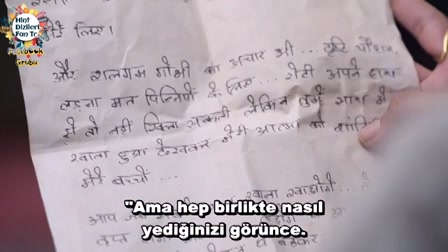 Hint
Dizileri
Fan Tr
Facebook
Grubu
लिए।
और शलगम गोभी का अचार भी ... तुम्हें
लड़ना मत पिन्नियों के लिए ... रोटी अपने हाथ
से तो नहीं खिला सकती लेकिन तुम्हें साथ में
खाता हुआ देखकर मेरी आत्मा को शांति
मेरे बच्चों ...
खाना खाओगे
आप जब
"Ama hep birlikte nasıl
yediğinizi görünce.